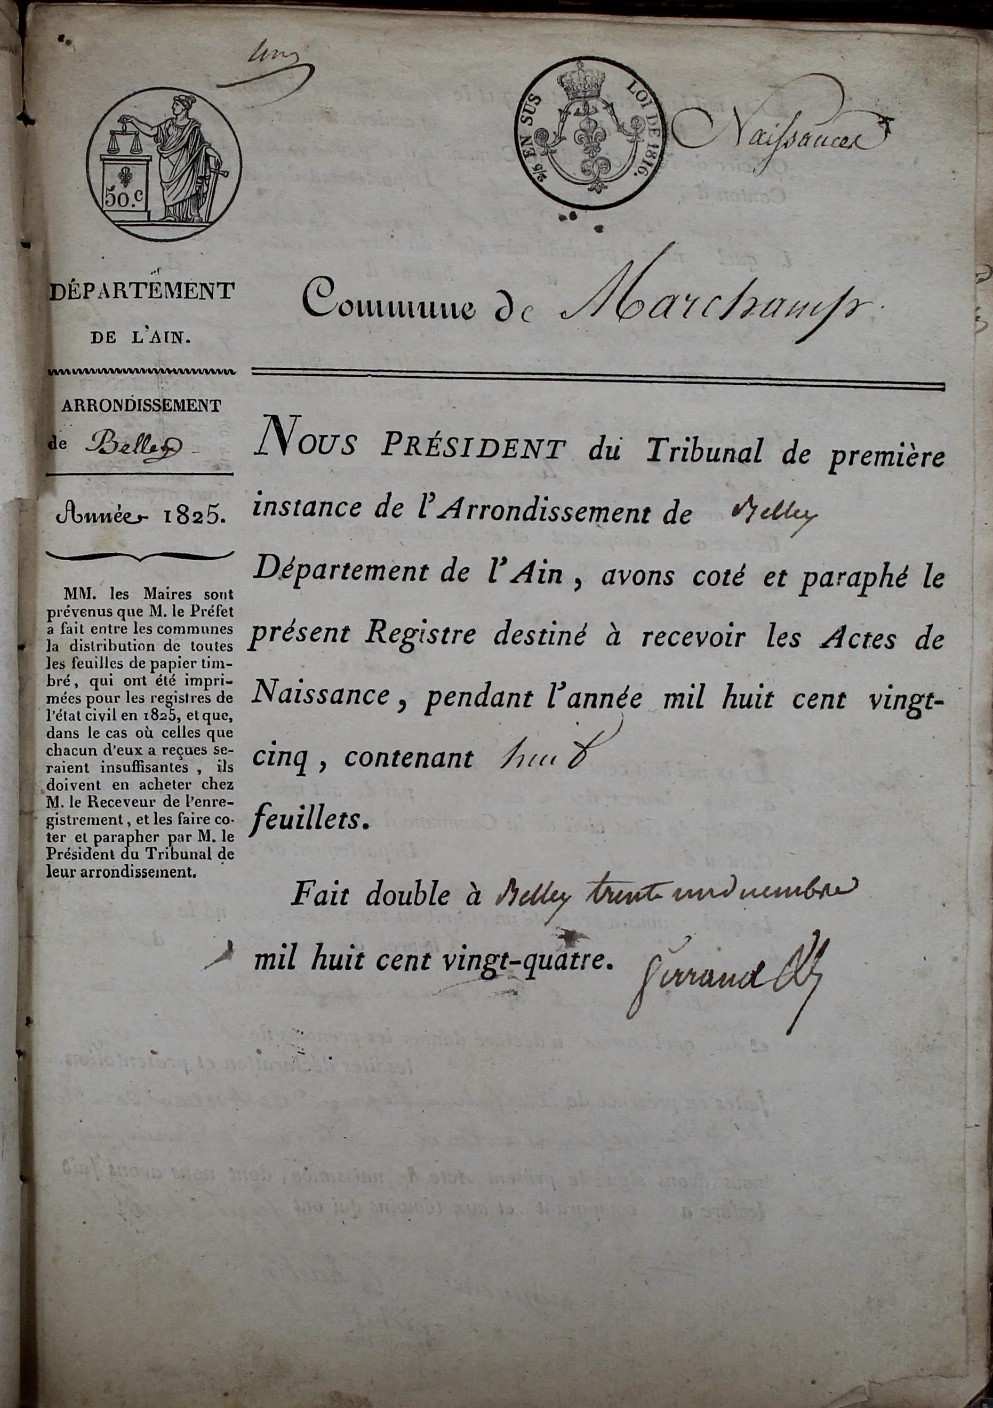 un
50.c
2/5 EN SUS LOI DE 1816.
Naissances
DÉPARTEMENT
DE L'AIN.
Commune de Marchamp.
ARRONDISSEMENT
de Belley
Année 1825.
MM. les Maires sont
prévenus que M. le Préfet
a fait entre les communes
la distribution de toutes
les feuilles de papier tim-
bré, qui ont été impri-
mées pour les registres de
l'état civil en 1825, et que,
dans le cas où celles que
chacun d'eux a reçues se-
raient insuffisantes, ils
doivent en acheter chez
M. le Receveur de l'enre-
gistrement, et les faire co-
ter et parapher par M. le
Président du Tribunal de
leur arrondissement.
NOUS PRÉSIDENT du Tribunal de première
instance de l'Arrondissement de Belley
Département de l'Ain, avons coté et paraphé le
présent Registre destiné à recevoir les Actes de
Naissance, pendant l'année mil huit cent vingt-
cinq, contenant huit
feuillets.
Fait double à Belley trente un décembre
mil huit cent vingt-quatre.